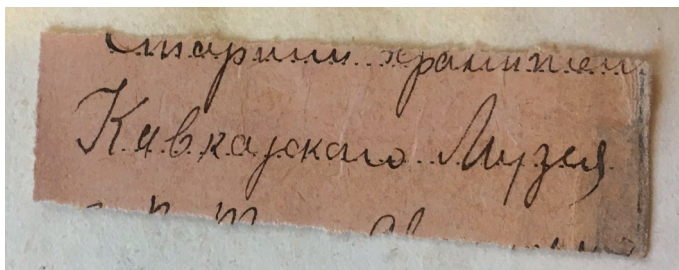 Старший хранитель
Кавказского Музея